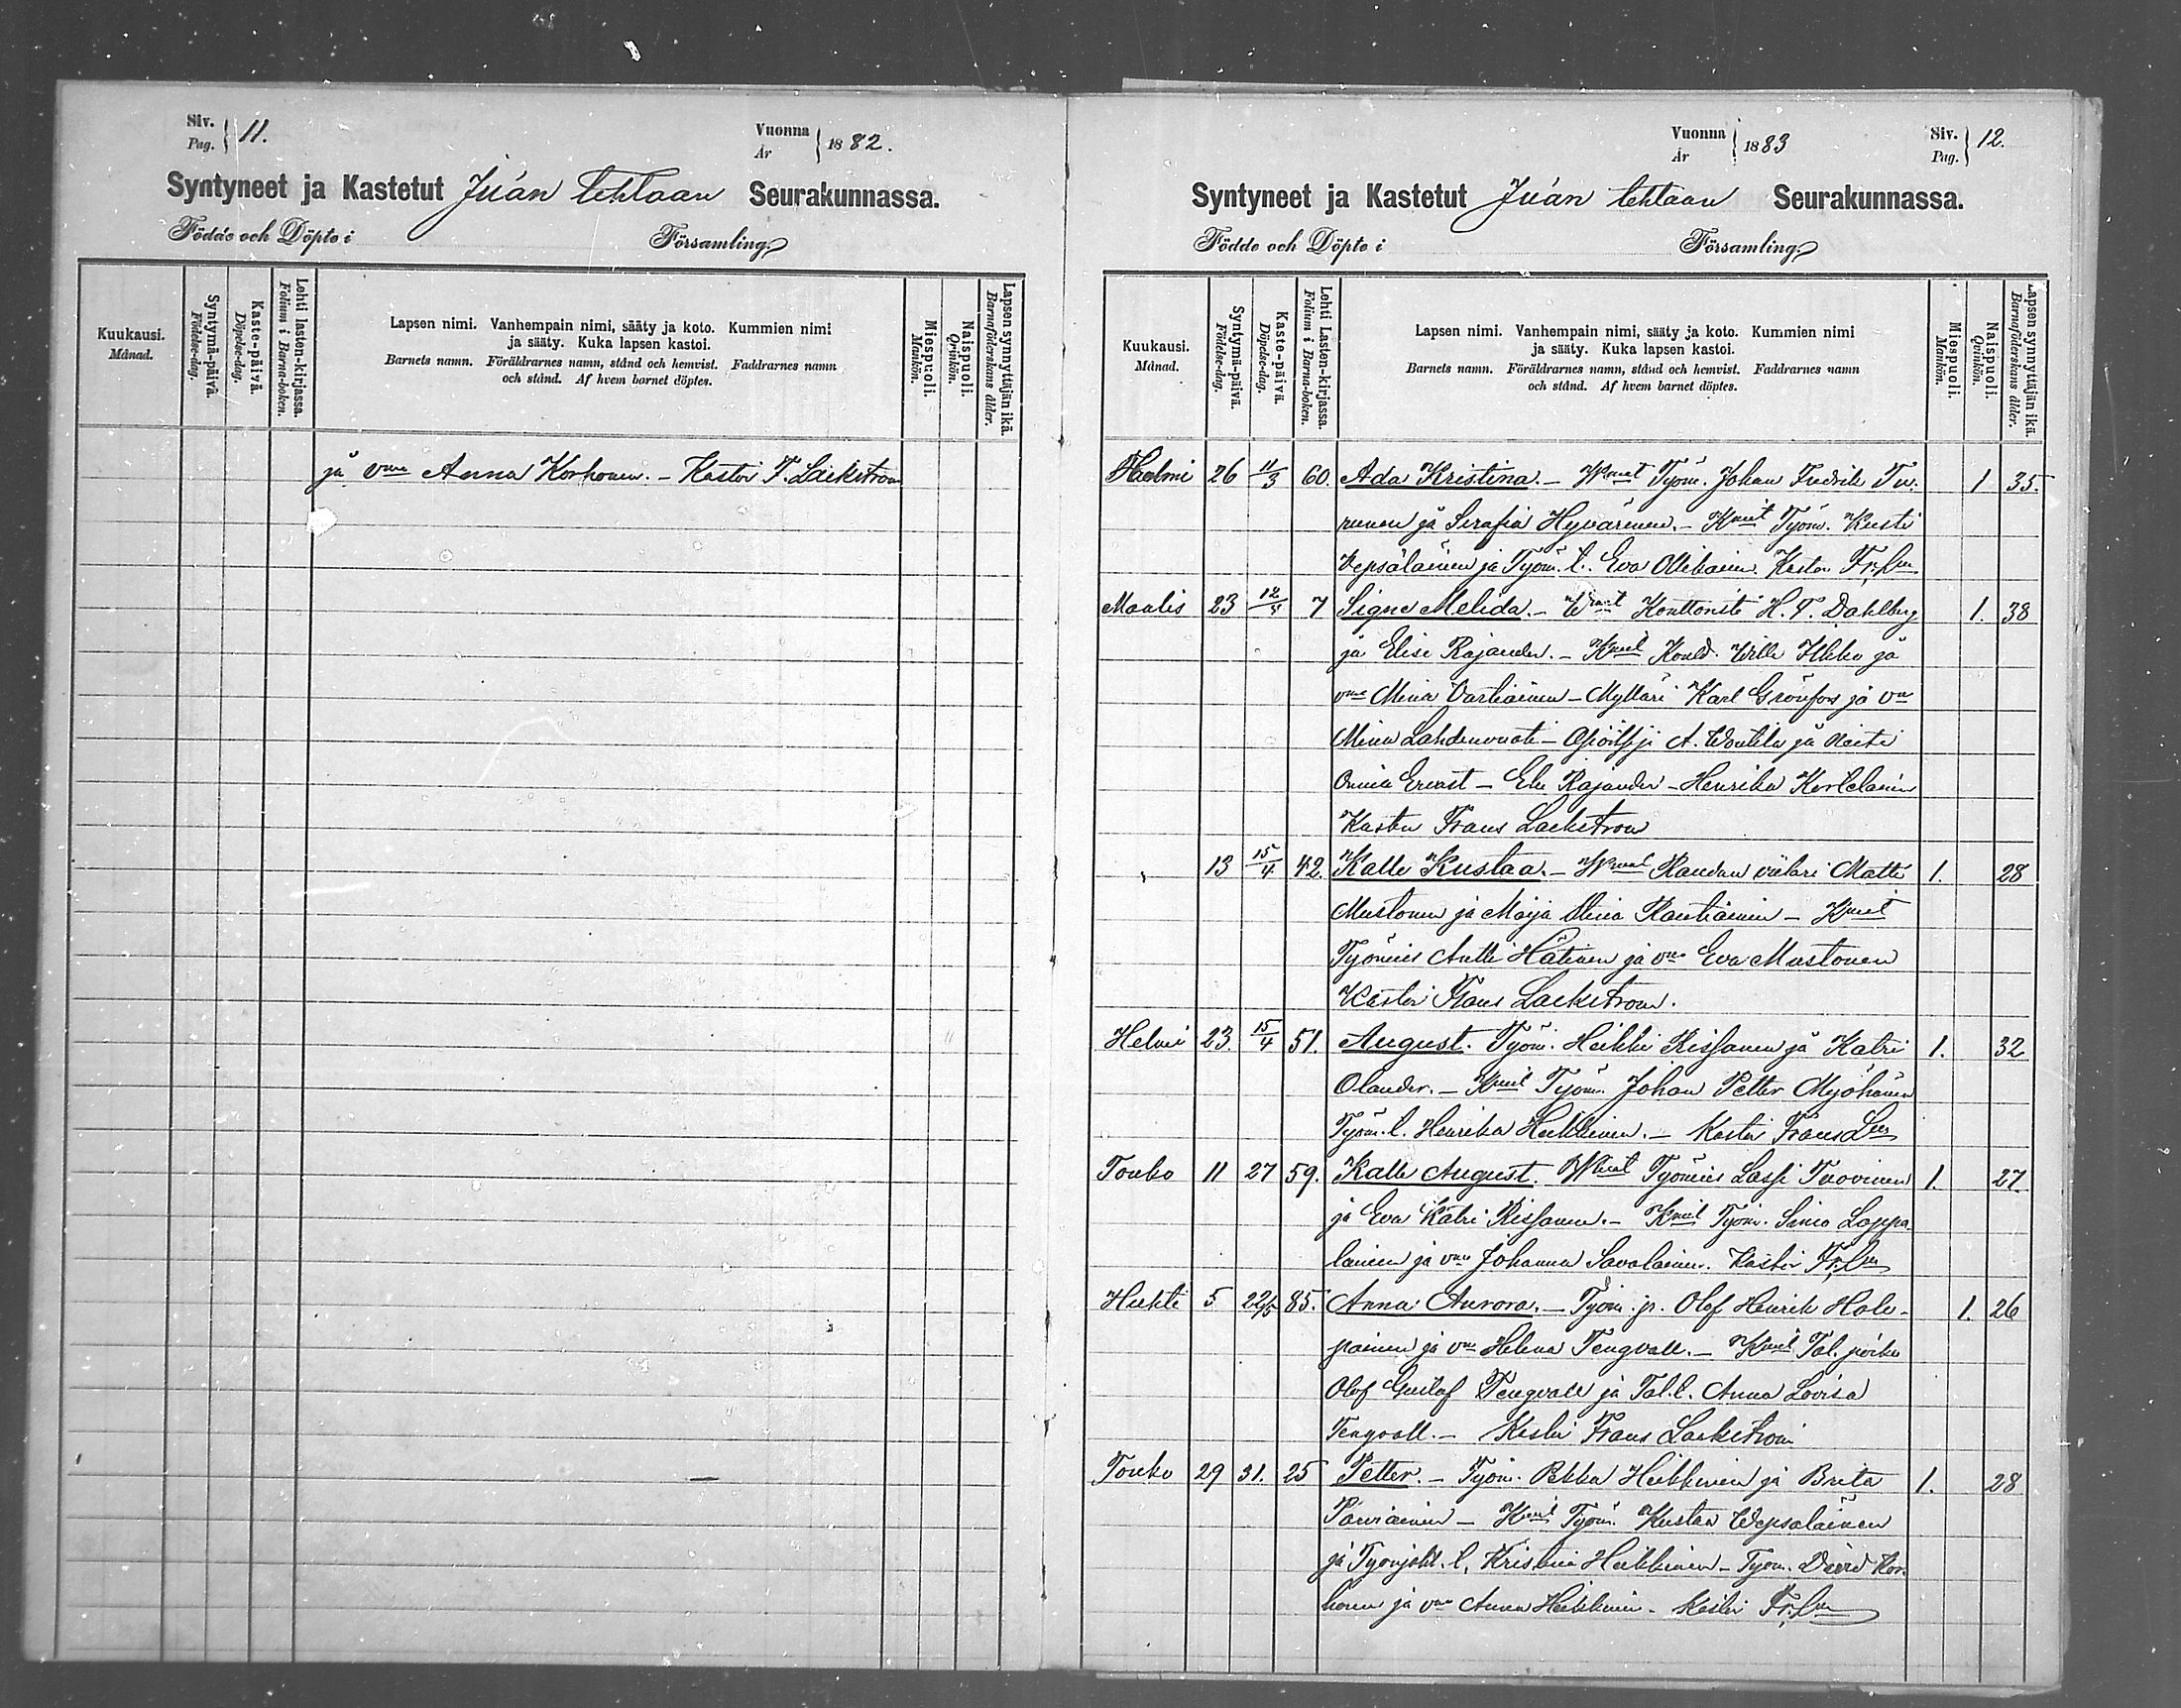 Siv. Pag. 11.
Vuonna År 1882.
Syntyneet ja Kastetut Juan tehtaan Seurakunnassa.
Födde och Döpte i Församling.
Kuukausi. Månad.
Syntymä-päivä. Födelse-dag.
Kaste-päivä. Döpelse-dag.
Lehti lasten-kirjassa. Folium i Barna-boken.
Lapsen nimi. Vanhempain nimi, sääty ja koto. Kummien nimi
ja sääty. Kuka lapsen kastoi.
Barnets namn. Föräldrarnes namn, stånd och hemvist. Faddrarnes namn
och stånd. Af hvem barnet döptes.
Miespuoli. Mankön.
Naispuoli. Qvinkön.
Lapsen synnyttäjän ikä. Barnaföderskans ålder.
ja vmo Anna Korhonen. - Kastoi F. Lackström
Vuonna År 1883
Siv. Pag. 12.
Syntyneet ja Kastetut Juan tehtaan Seurakunnassa.
Födde och Döpte i Församling.
Kuukausi. Månad.
Syntymä-päivä. Födelse-dag.
Kaste-päivä. Döpelse-dag.
Lehti Lasten-kirjassa. Folium i Barna-boken.
Lapsen nimi. Vanhempain nimi, sääty ja koto. Kummien nimi
ja sääty. Kuka lapsen kastoi.
Barnets namn. Föräldrarnes namn, stånd och hemvist. Faddrarnes namn
och stånd. Af hvem barnet döptes.
Miespuoli. Mankön.
Naispuoli. Qvinkön.
Lapsen synnyttäjän ikä. Barnaföderskans ålder.
Helmi 26 11/3 60. Ada Kristina. - Wmat Työm. Johan Fredrik Tu- 1 35.
runen ja Serafia Hyvärinen. - Kmit Työm. Kusti
Vepsäläinen ja Työm. l. Eva Ollikain. Kastoi Fr. Lm
Maalis 23 12/ 7 Signe Melida. - Wmat Konttoristi H. F. Dahlberg 1. 38
ja Elise Rajander. - Kmit Wille ja
vmo Mina Vartiainen - Mylläri Karl Grönfors ja vm
Mina Lahdenvuoti - A. Woutila ja Neiti
Ervast - Rajander - Henrika Kortelainen
Kastoi Frans Lackström
" 13 15/4 42. Kalle Kustaa. - Wmat Raudan viilari Matti 1. 28
Mustonen ja Maija Stina Rautiainen - Kmit
Työmies Antti Hätinen ja vmo Eva Mustonen
Kastoi Frans Lackström.
Helmi 23. 15/4 51. August. Työm. Heikki Rissanen ja Katri 1. 32
Olander. - Kmit Työm. Johan Petter Myöhänen
Työm. l. Henrika Heikkinen. - Kastoi Frans Lm
Touko 11 27 59. Kalle August. Wmat Työmies Lassi Tuovinen 1. 27.
ja Eva Katri Rissanen. - Kmit Työm. Simo Lappa-
lainen ja vmo Johanna Savolainen. Kastoi Fr. Lm
Huhti 5 22/5 85. Anna Aurora. - Työm. p. Olof Henrik Holo- 1. 26
painen ja vm Helena Tengvall. - Kmit Tal. poika
Olof Gustaf Tengvall ja Tal. l. Anna Lovisa
Tengvall. - Kastoi Frans Lackström
Touko 29 31. 25 Petter. - Työm. Pekka Heikkinen ja Brita 1. 28
Parviainen - Kmit Työm. Kustaa Wepsäläinen
ja Työnjoht. l. Kristina Heikkinen - Työm. David Kor-
honen ja vmo Anna Heikkinen - Kastoi Fr. Lm